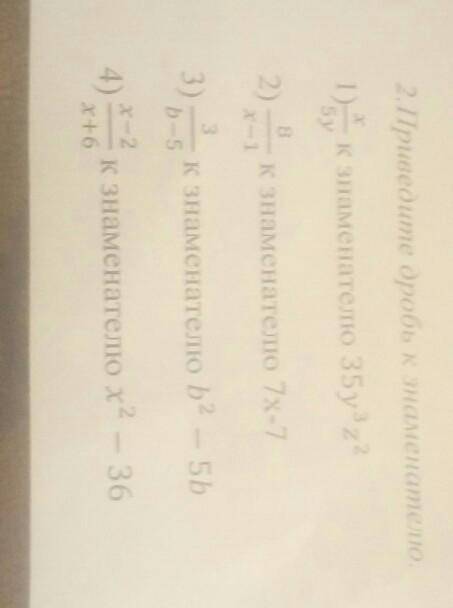 2.Приведите дробь к знаменателю.
1) x/5y к знаменателю 35y³z²
2) 8/x−1 к знаменателю 7x-7
3) 3/b−5 к знаменателю b² − 5b
4) x−2/x+6 к знаменателю x² − 36